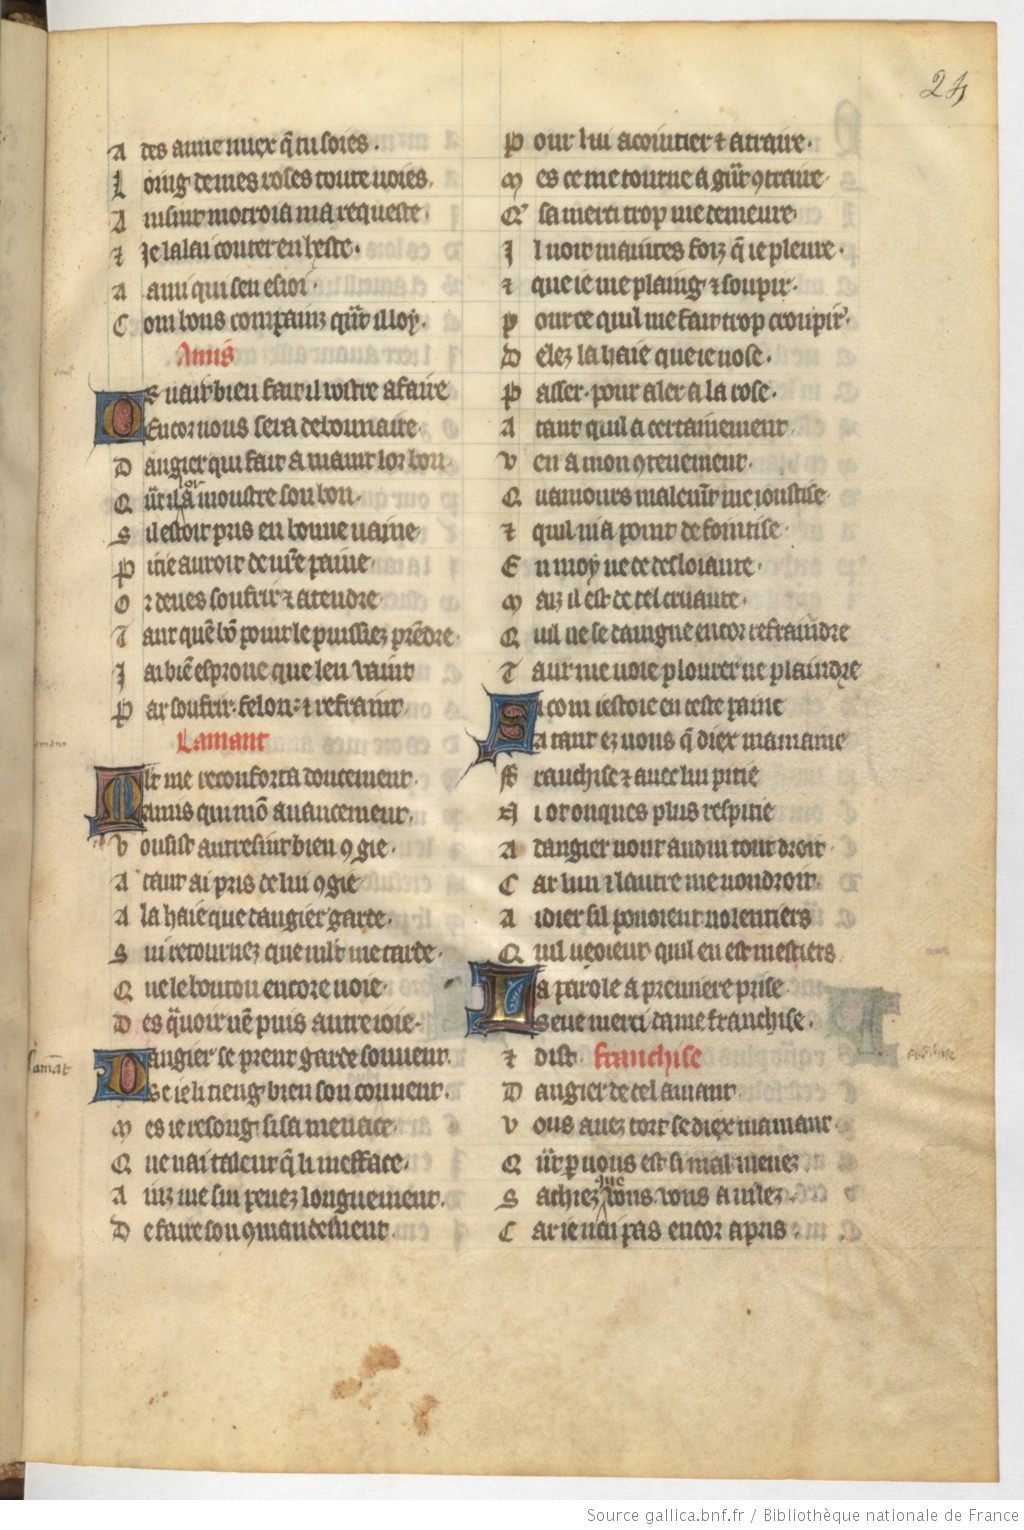 24
A des aime miex q̃ tu soies.
L oing de mes roses toute uoies.
A insint motroia ma requeste.
⁊ Je lalai conter en heste.
A ami qui sen esioi.
C om bons compainz q̃nt il loy.
Amis
Or uait bien fait il uostre afaire
Encor uous sera debonnaire.
D angier qui fait a maint lor bon
Q ñt il lor a moustre son bon.
S il estoit pris en bonne uaine
P itie auroit de ur̃e paine.
O r deues soufrir ⁊ atendre
T ant quẽ bõ point le puissiez prẽdre
J ai biẽ esproue que len vaint
P ar soufrir felon. ⁊ refraint.
Lamant
Mlt me reconforta doucement.
Lamis qui mõ auancement.
V ousist autresint bien 9 gie.
A tant ai pris de lui 9gie
A la haie que dangier garde.
S ui retournez que mlt me tarde.
Q ue le bouton encore uoie.
D es q̃ uoir nẽ puis autre ioie.
Lamãt
Dangier se prent garde souuent.
Se ie li tieng bien son couuent.
M es ie resoing si sa menace.
Q ue nai talent q̃ li mefface.
A inz me sui penez longuement.
D e faire son 9mandement
P our lui acointier ⁊ atraire.
M es ce me tourne a gñt 9traire
Q̾ sa merci trop me demeure.
J l uoit maintes foiz q̃ ie pleure.
⁊ que ie me plaing ⁊ soupir.
P our ce quil me fait trop croupir.
D elez la haie que ie nose.
P asser. pour aler a la rose.
A tant quil a certainement
V eu a mon 9tenement.
Q uamours malemt̃ me ioustise.
⁊ quil ni a point de faintise
E n moy ne de desloiaute.
M aiz il est de tel cruaute.
Q uil ne se daingne encor refraindre
T ant me uoie plourer ne plaindre
Si com iestoie en ceste paine
Atant ez uous q̃ diex mamaine
F ranchise ⁊ auec lui pitie
N i ot onques plus respitie
A dangier uont andui tout droit
C ar lun ⁊ lautre me uondroit.
A idier sil pouoient uolentiers
Q uil ueoient quil en est mestiers
La parole a premiere prise
Seue merci dame franchise.
⁊ dist. franchise
franchise
D angier de cel amant
V ous auez tort se diex mamant.
Q ñt p̱ uous est si mal menez
S achiez que uous uous auilez.
C ar ie nai pas encor apris
Source gallica.bnf.fr / Bibliothèque nationale de France